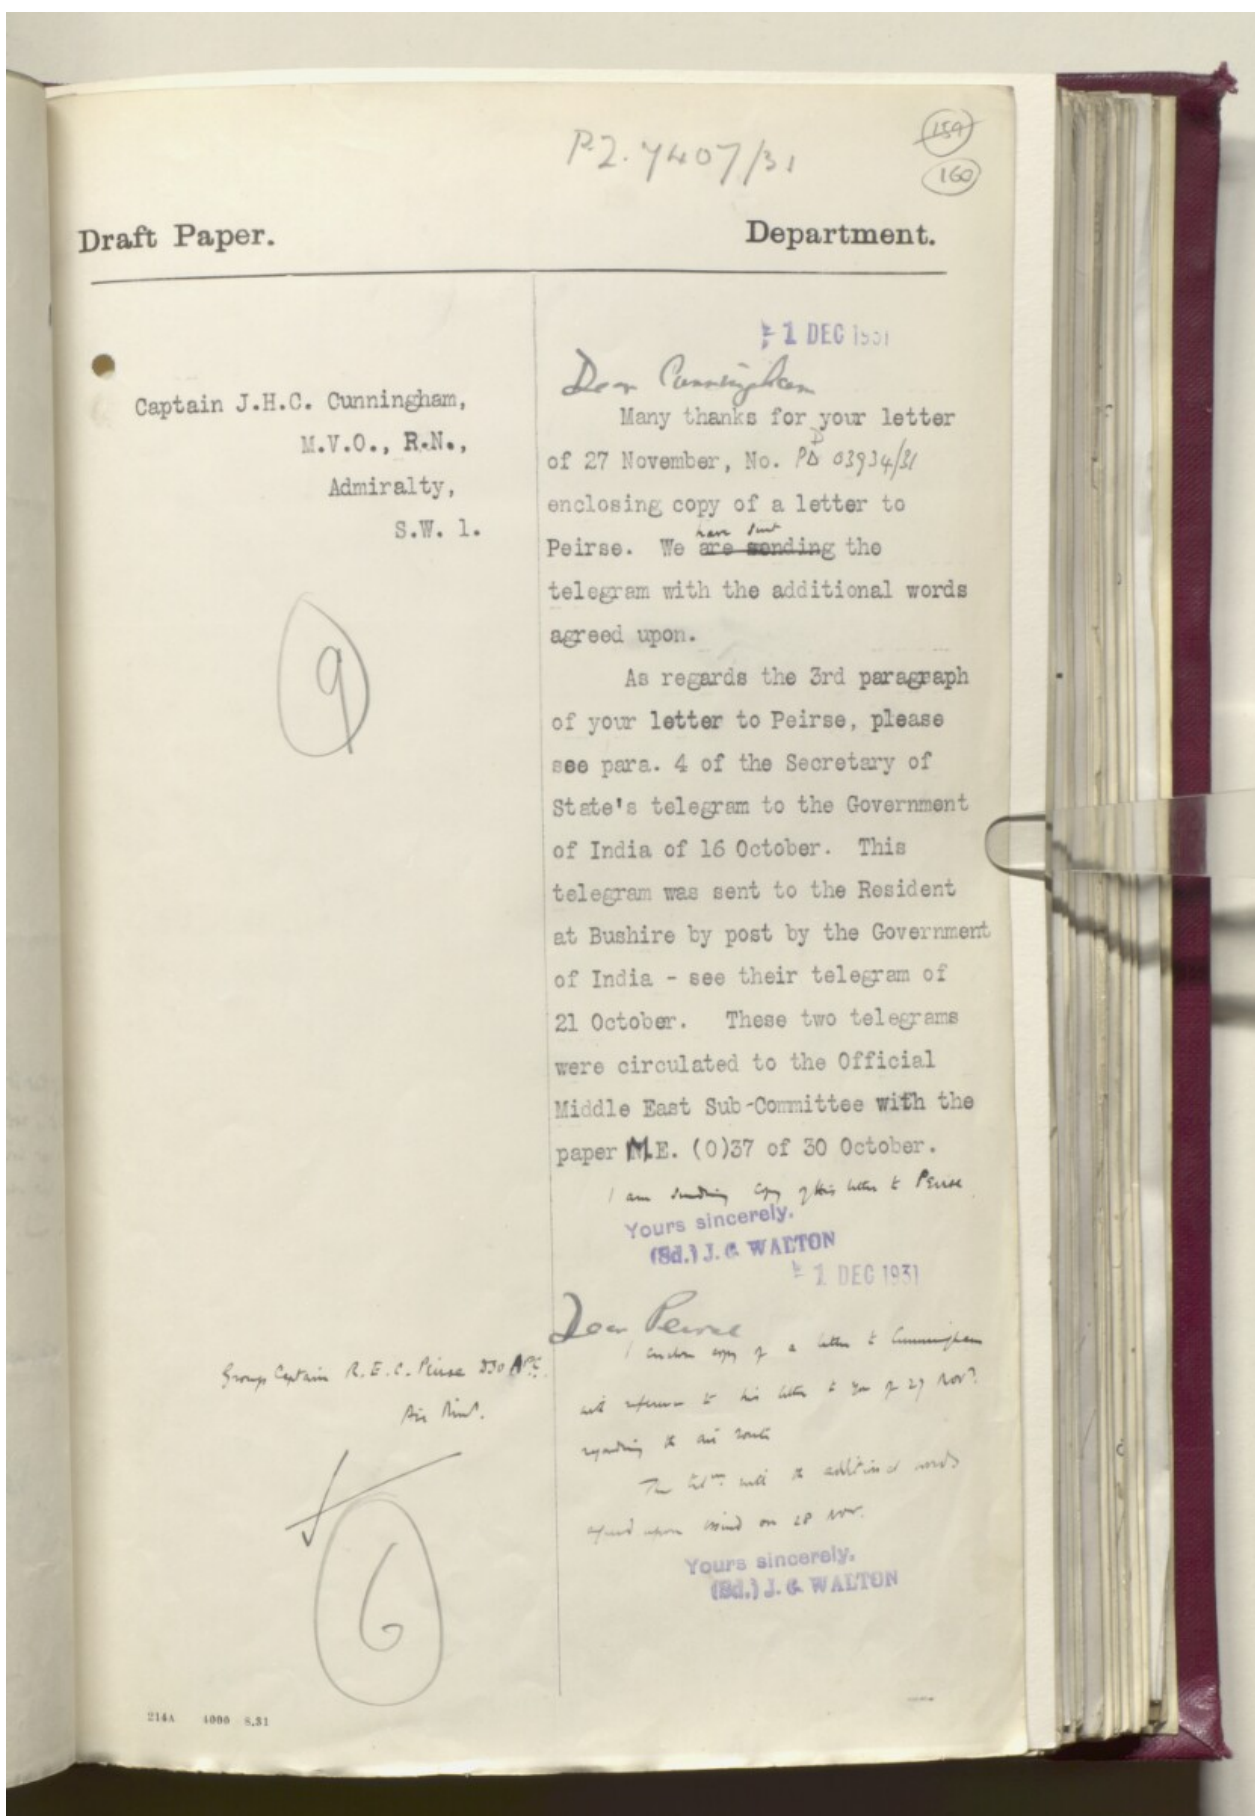 P.Z. 7407/31
159
160
Draft Paper.
Department.
1 DEC 1931
Captain J.H.C. Cunningham,
M.V.O., R.N.,
Admiralty,
S.W. 1.
9
Dear Cunningham
Many thanks for your letter
of 27 November, No. PD 03934/31
enclosing copy of a letter to
have sent
Peirse. We are sending the
telegram with the additional words
agreed upon.
As regards the 3rd paragraph
of your letter to Peirse, please
see para. 4 of the Secretary of
State's telegram to the Government
of India of 16 October. This
telegram was sent to the Resident
at Bushire by post by the Government
of India - see their telegram of
21 October. These two telegrams
were circulated to the Official
Middle East Sub-Committee with the
paper M.E. (O)37 of 30 October.
I am sending copy of this letter to Peirse
Yours sincerely.
(Sd.) J. C. WALTON
1 DEC 1931
Group Captain R.E.C. Peirse DSO AFC.
Air Min.
6
Dear Peirse
I enclose copy of a letter to Cunningham
with reference to his letter to you of 27 Nov.
regarding the air route
The telm. with the additional words
agreed upon issued on 28 Nov.
Yours sincerely.
(Sd.) J. C. WALTON
214A 4000 8.31